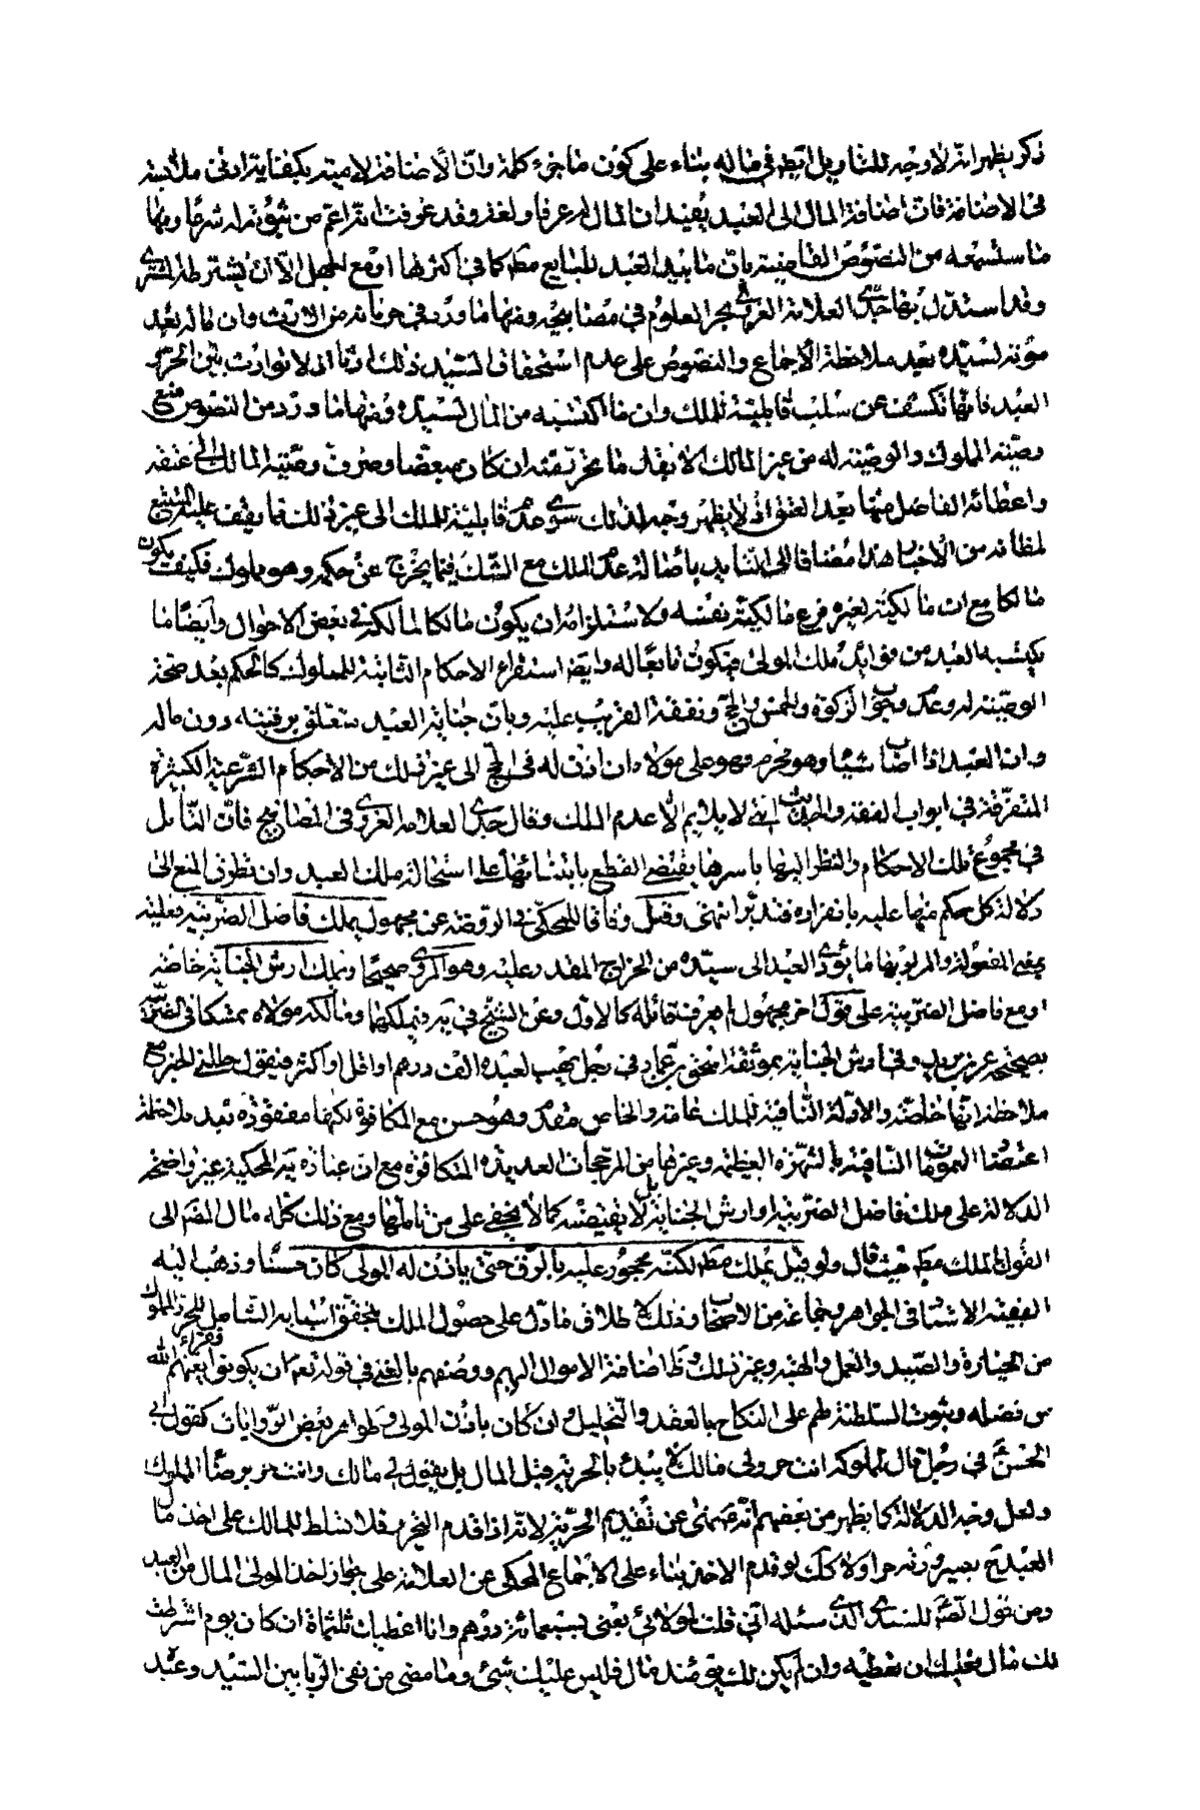 ذكر يظهر انه لا وجه للتاويل ايضا في ماله بناء على كون ما جزء كلمة وانّ الاضافة لامية يكفيها ادنى ملابسة
في الاضافة فان اضافة المال الى العبد يفيد ان المال له عرفا ولغة وقد عرفت انه اعم من ثبوته له شرعا ومنها
ما ستسمعه من النصوص القاضية بان ما بيد العبد للبايع مطلقا كما في اكثرها او مع الجهل الّا ان يشترطه المشتري
وقد استدل بها جدّي العلامة الغروي بحر العلوم في مصابيحه ومنها ما ورد في حرمانه من الارث وان ماله بعد
موته لسيّده بعد ملاحظة الاجماع والنصوص على عدم استحقاق السيّد ذلك ارثا اذ لا توارث بين الحرّ و
العبد فانها تكشف عن سلب قابلية للملك وان ما اكتسبه من المال لسيّده ومنها ما ورد من النصوص منع
وصيّة المملوك والوصيّة له من غير المالك الا بقدر ما تحرّر منه ان كان مبعّضا وصرف وصيّة المالك الى عتقه
واعطائه الفاضل منها بعد العتق اذ لا يظهر وجه لذلك سوى عدم قابلية للملك الى غير ذلك مما يقف عليه المتتبع
لمظانه من الاخبار هذا مضافا الى التاييد باصالة عدم الملك مع الشك فيما يخرج عن حكمه وهو مملوك فكيف يكون
مالكا مع ان مالكيته لغيره فرع مالكيته نفسه ولاستلزامه ان يكون مالكا لمالكه في بعض الاحوال وايضا ما
يكتسبه العبد من فوائد ملك المولى فيكون تابعا له وايضا استقراء الاحكام الثابتة للمملوك كالحكم بعد صحة
الوصيّة له وعدم وجوب الزكوة والخمس والحج ونفقة القريب عليه وبان جناية العبد تتعلق برقبته دون ماله
وان العبد اذا اصاب شيئا وهو محرم فهو على مولاه ان اذن له في الحج الى غير ذلك من الاحكام الشرعية الكثيرة
المتفرّقة في ابواب الفقه والحديث التي لا يلائم الّا عدم الملك وقال جدّي العلامة الغروي في المصابيح فانّ التامّل
في مجموع تلك الاحكام والنظر اليها باسرها يقتضي القطع بابتنائها على استحالة ملك العبد وان تطرق المنع الى
دلالة كل حكم منها عليه بانفراده فتدبّر انتهى وقيل وفاقا للمحكي في الروضة عن مجهول يملك فاضل الضريبة وعليه
يعني المفعولة والمراد بها ما يؤدي العبد الى سيّده من الخراج المقدر عليه وهو المروي صحيحا ويملك ارش الجناية خاصّة
او مع فاضل الضريبة على قول اخر مجهول لم يعرف قائله كالاول وعن الشيخ في يه فيملكها ومالكه مولاه متمسكا في الضريبة
بصحيحة عمر بن يزيد وفي ارش الجناية بموثقة اسحق بن عمار في رجل يهب لعبده الف درهم او اقل او اكثر فيقول حللني الخبر مع
ملاحظة انها خاصّة والادلة النافية للملك عامة والخاص مقدّم وهو حسن مع المكافؤة لكنها مفقودة بعد ملاحظة
اعتضاد العمومات النافية بالشهرة العظيمة وغيرها من المرجحات العديدة المتكافؤة مع ان عبارة يه المحكية غير واضحة
الدلالة على ملك فاضل الضريبة وارش الجناية بل لا يقتضيه كما لا يخفى على من تاملها ومع ذلك كله مال المصنف الى
القول بالملك مطلقا حيث قال ولو قيل يملك مطلقا لكنّه محجور عليه بالرق حتى ياذن له المولى كان حسنا وذهب اليه
الفقيه الاستاد في الجواهر وجماعة من الاصحاب وذلك لاطلاق ما دلّ على حصول الملك بتحقق اسبابه الشامل للحر والمملوك
من الحيازة والصيد والعمل والهبة وغير ذلك ولاضافة الاموال اليهم ووصفهم بالغنى في قوله تعالى ان يكونوا فقراء يغنهم الله
من فضله وثبوت السلطنة لهم على النكاح بالعقد والتحليل وان كان باذن المولى وظواهر بعض الرّوايات كقول ابي
الحسن في رجل قال لمملوكه انت حر ولي مالك لا يبدء بالحرية قبل المال بل يقول لي مالك وانت حر برضا المملوك
ولعل وجه الدلالة كما يظهر من بعضهم انه نهى عن تقديم الحرّية لانه اذا قدم التحرير فلا تسلط للمالك على اخذ مال
العبد ح بصيرورته حرا ولا كك لو قدم الاخذ بناء على الاجماع المحكي عن العلامة على جواز اخذ المولى المال من العبد
ومن قول الصّادق للسندي الذي سئله اني قلت لمولائي بعني بسبعمائة درهم وانا اعطيك ثلثمائة ان كان يوم اشرطت
لك مال فعليك ان تعطيه وان لم يكن لك يومئذ مال فليس عليك شيئ وما مضى من نفى الربا بين السيّد وعبد